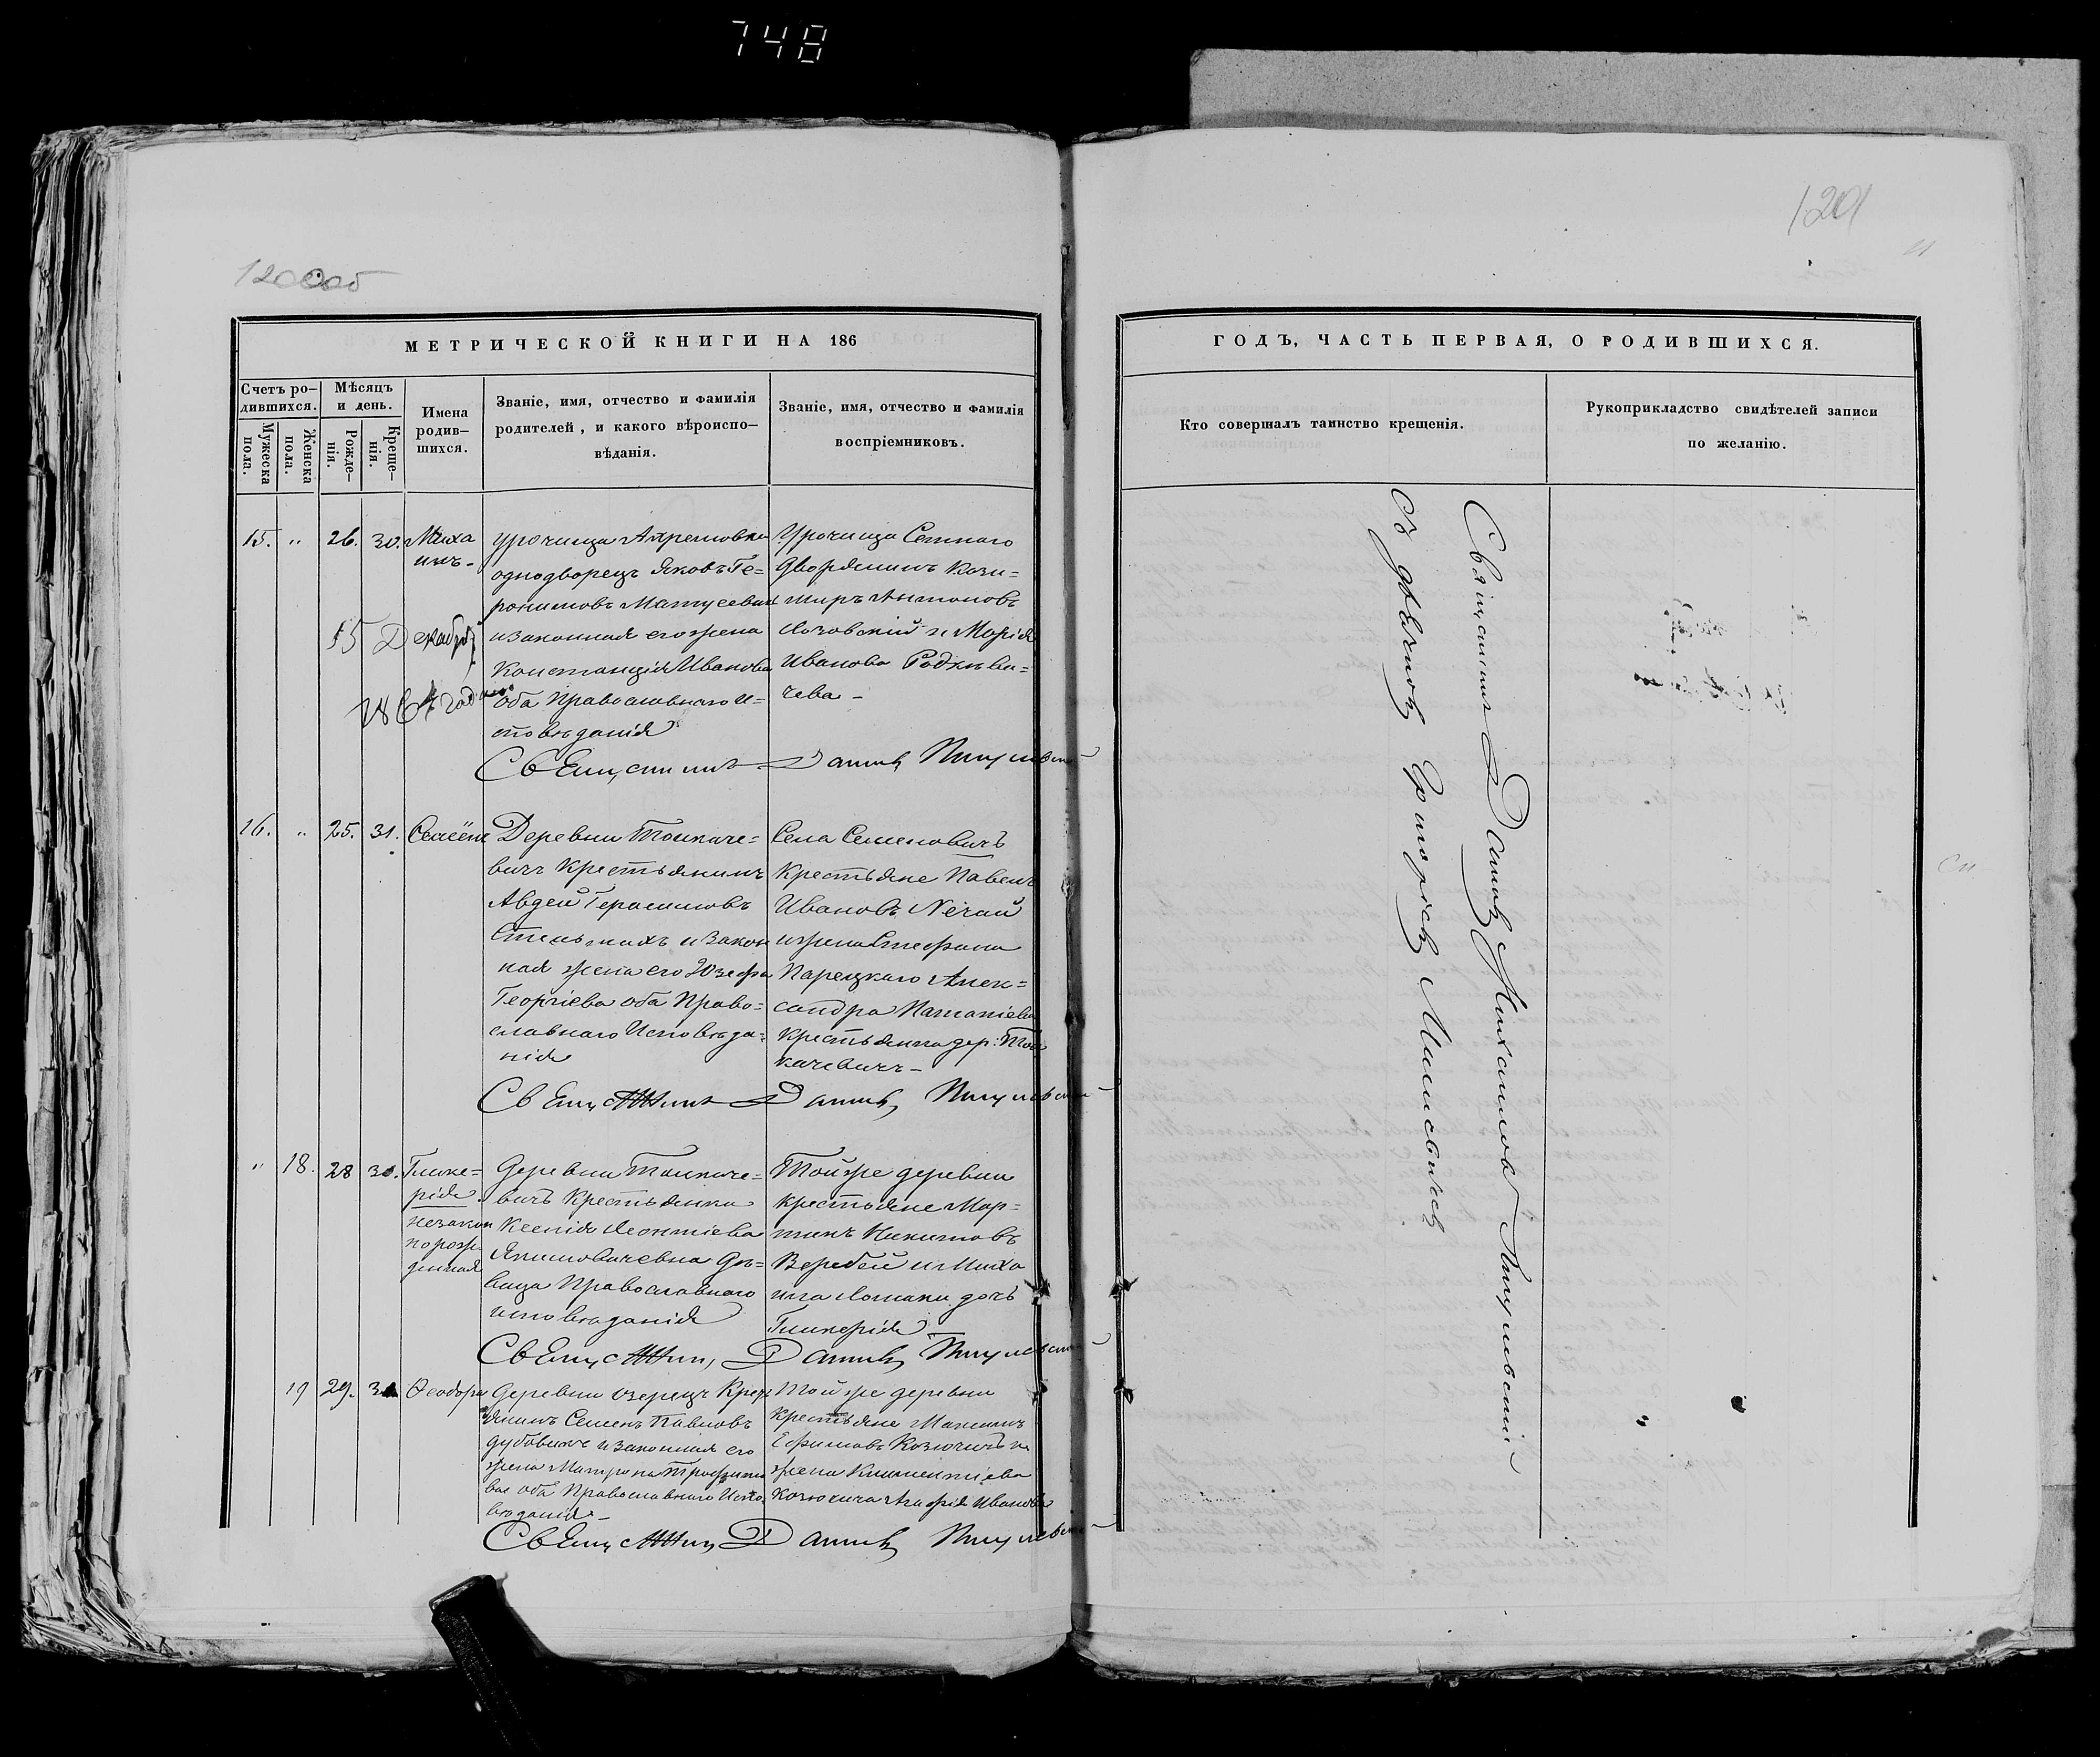 748
1201
120000б
МЕТРИЧЕСКОЙ КНИГИ НА 186
Счетъ ро-
дившихся.
Мужеска
пола.
Женска
пола.
Мѣсяцъ
и день.
Рожде-
нія.
Креще-
нія.
Имена
родив-
шихся.
Званіе, имя, отчество и фамилія
родителей, и какого вѣроиспо-
вѣданія.
Званіе, имя, отчество и фамилія
воспріемниковъ.
15. „ 26. 30. Миха
илъ.
урочища
однодворецъ Яковъ Ге=
ронимовъ Матусевичъ
и законная его жена
Констанція Иванова
оба православнаго и=
сповѣданія
Урочища
дворянинъ Кази=
миръ Антоновъ
и Марія
Иванова
чева -
15 Декабря
1864 года
Священникъ Даніилъ
16. „ 25. 31. Семёнъ
Деревни Толкаче=
вичъ крестьянинъ
Авдей Герасимовъ
и закон
ная жена его Юзефа
Георгіева оба право=
славнаго исповѣда=
нія
Села Семеновичъ
крестьяне Павелъ
Ивановъ Нечай
и жена Стефана
Парецкаго Алек=
сандра
крестьянка дер: Тол
качевичъ -
Священникъ Даніилъ
„ 18. 28 30. Глике=
рія
незакон
норож
денная
Деревни Толкаче=
вичъ крестьянка
Ксенія Леонтіева
Якимовичевна дѣ=
вица православнаго
исповѣданія
Той же деревни
крестьяне Мар=
тинъ Никитовъ
Веребей и Миха
ила дочь
Гликерія
Священникъ Даніилъ
19 29. 31 Ѳеодора
Деревни Озерецъ Крест
янинъ Семенъ Павловъ
Дубовикъ и законная его
жена Матрона Трофимо
ва оба православнаго испо
вѣданія -
Той же деревни
крестьяне Максимъ
Ефимовъ Козючицъ и
жена Климентіева
Иванова
Священникъ Даніилъ
ГОДЪ, ЧАСТЬ ПЕРВАЯ, О РОДИВШИХСЯ.
Кто совершалъ таинство крещенія.
Рукоприкладство свидѣтелей записи
по желанію.
Священникъ Даніилъ Михаиловъ
Съ дьячкомъ Григоріемъ